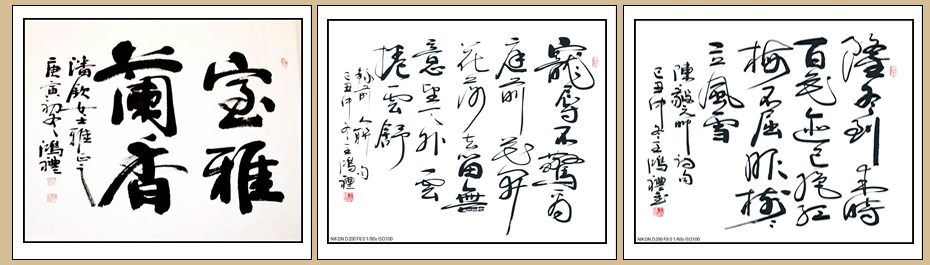 室雅
蘭香
潘欽女士雅正
庚寅初冬鴻禮
寵辱不驚看
庭前花開
花落去留無
意望天外雲
捲雲舒
錄前人聯句
己丑仲冬王鴻禮
NIKON D200 F8.0 1/60s ISO100
隆冬到來時
百花迹已絕紅
梅不屈服樹々
立風雪
陳毅元帥詩句
己丑仲冬王鴻禮書
NIKON D200 F8.0 1/60s ISO100